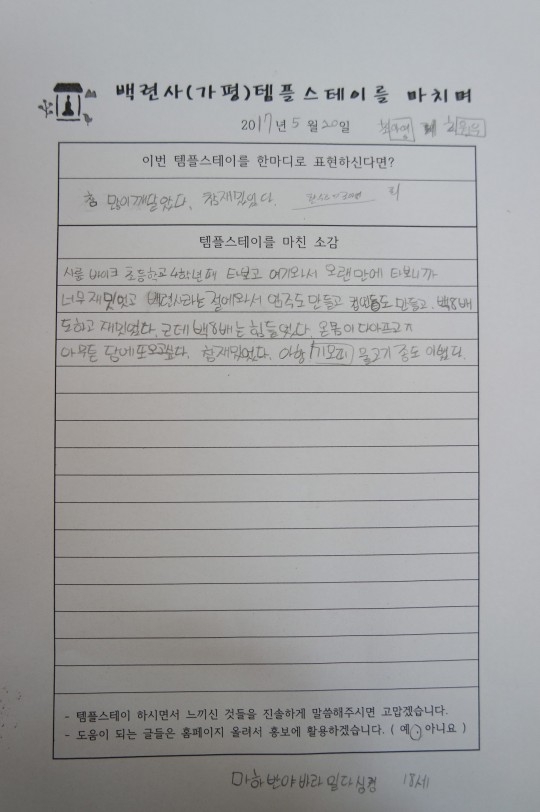 백련사(가평)템플스테이를 마치며
2017년 5월 20일
이번 템플스테이를 한마디로 표현하신다면?
참 많이깨달았다. 참재밌있다.
템플스테이를 마친 소감
바이크 초등학교 4학년때 타보고 여기와서 오랜만에 타보니까
너무재밌었고 백련사라는 절에와서 염주도 만들고 도 만들고. 백8배
도하고 재밌었다. 근데 백8배는 힘들었다. 온몸이 다아프고
아무튼 담에또오고싶다. 참재밌었다. 아참 물고기 종도 이뻤다.
- 템플스테이 하시면서 느끼신 것들을 진솔하게 말씀해주시면 고맙겠습니다.
- 도움이 되는 글들은 홈페이지 올려서 홍보에 활용하겠습니다. ( 예 , 아니요 )
마하반야바라밀다심경 18세